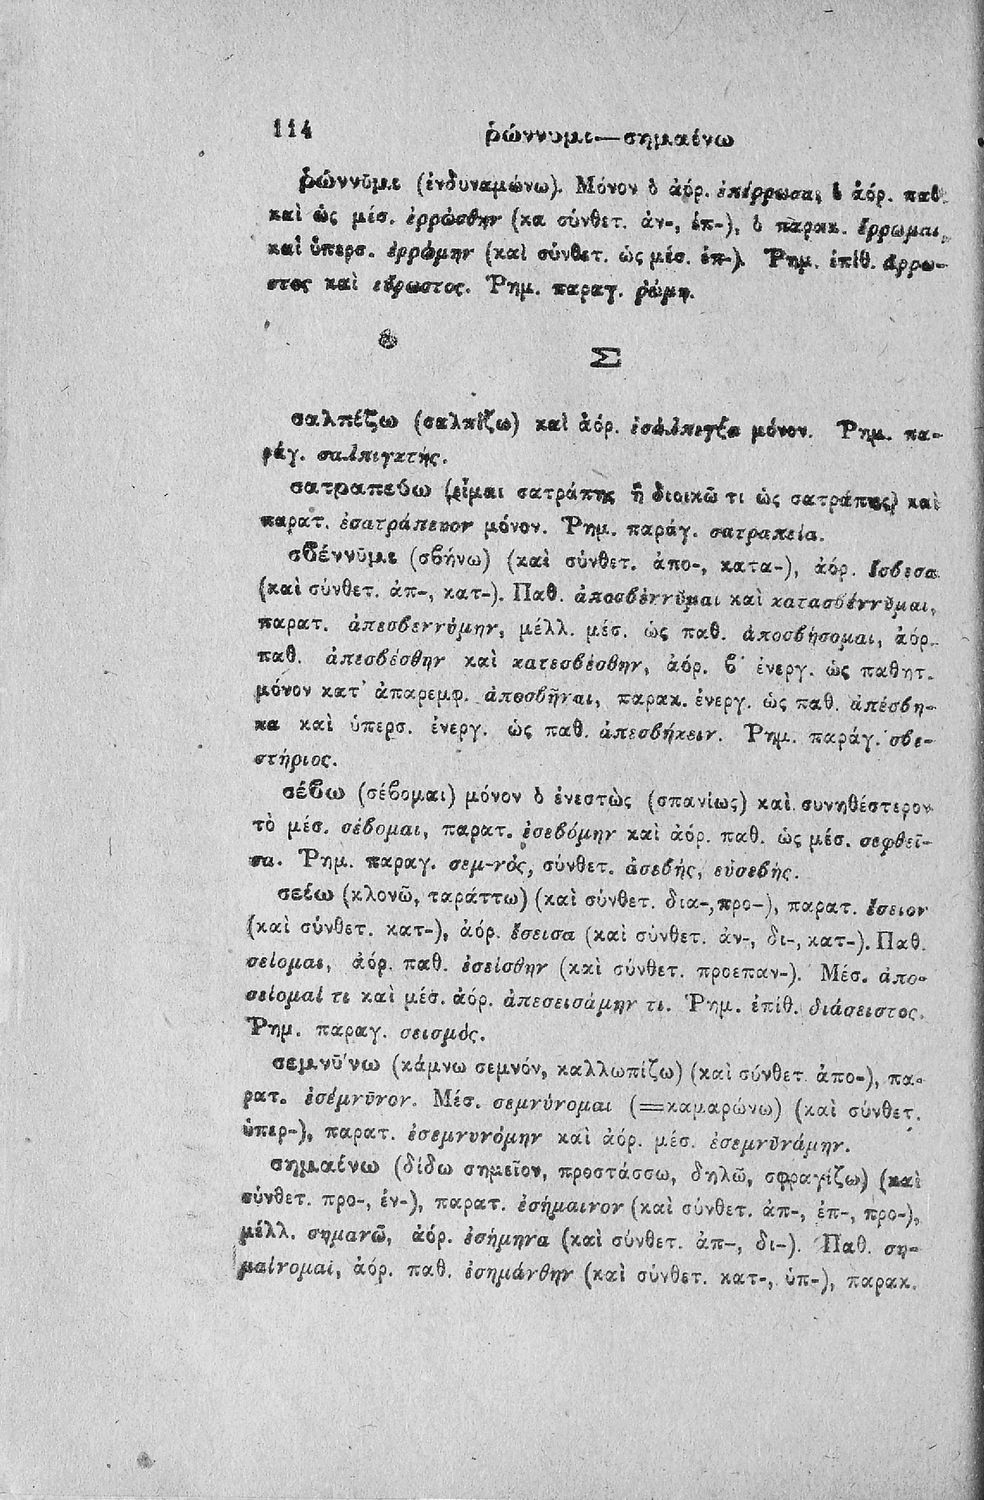 114
ῥώννυμι—σημαίνω
ῥώννῡμι (ἐνδυναμώνω). Μόνον ὁ ἀόρ. ἐπέρρωσα, ὁ ἀόρ. παθ.
καὶ ὡς μέσ. ἐρρώσθην (κα σύνθετ. ἀν-, ἐπ-), ὁ παρακ. ἔρρωμαι,
καὶ ὑπερσ. ἐρρώμην (καὶ σύνθετ. ὡς μέσ. ἐπ-). Ῥημ. ἐπίθ. ἄρρω-
στος καὶ εὔρωστος. Ῥημ. παραγ. ῥώμη.
Σ
σαλπίζω (σαλπίζω) καὶ ἀόρ. ἐσάλπιγξα μόνον. Ῥημ. πα-
ράγ. σαλπιγκτής.
σατραπεύω (εἶμαι σατράπης ἢ διοικῶ τι ὡς σατράπης) καὶ
παρατ. ἐσατράπευον μόνον. Ῥημ. παράγ. σατραπεία.
σβέννῡμι (σβήνω) (καὶ σύνθετ. ἀπο-, κατα-), ἀόρ. ἔσβεσα
(καὶ σύνθετ. ἀπ-, κατ-). Παθ. ἀποσβέννῡμαι καὶ κατασβέννῡμαι,
παρατ. ἀπεσβεννύμην, μέλλ. μέσ. ὡς παθ. ἀποσβήσομαι, ἀόρ.
παθ. ἀπεσβέσθην καὶ κατεσβέσθην, ἀόρ. β΄ ἐνεργ. ὡς παθητ.
μόνον κατ' ἀπαρεμφ. ἀποσβῆναι, παρακ. ἐνεργ. ὡς παθ. ἀπέσβη-
κα καὶ ὑπερσ. ἐνεργ. ὡς παθ. ἀπεσβήκειν. Ῥημ. παράγ. σβε-
στήριος.
σέβω (σέβομαι) μόνον ὁ ἐνεστὼς (σπανίως) καὶ συνηθέστερον
τὸ μέσ. σέβομαι, παρατ. ἐσεβόμην καὶ ἀόρ. παθ. ὡς μέσ. σεφθεῖ-
σα. Ῥημ. παραγ. σεμ-νός, σύνθετ. ἀσεβής, εὐσεβής.
σείω (κλονῶ, ταράττω) (καὶ σύνθετ. δια-, προ-), παρατ. ἔσειον
(καὶ σύνθετ. κατ-), ἀόρ. ἔσεισα (καὶ σύνθετ. ἀν-, δι-, κατ-). Παθ.
σείομαι, ἀόρ. παθ. ἐσείσθην (καὶ σύνθετ. προεπαν-). Μέσ. ἀπο-
σείομαί τι καὶ μέσ. ἀόρ. ἀπεσεισάμην τι. Ῥημ. ἐπίθ. διάσειστος.
Ῥημ. παραγ. σεισμός.
σεμνῡ́νω (κάμνω σεμνόν, καλλωπίζω) (καὶ σύνθετ ἀπο-), πα-
ρατ. ἐσέμνῡνον. Μέσ. σεμνύνομαι (=καμαρώνω) (καὶ σύνθετ.
ὑπερ-), παρατ. ἐσεμνυνόμην καὶ ἀόρ. μέσ. ἐσεμνῡνάμην.
σημαίνω (δίδω σημεῖον, προστάσσω, δηλῶ, σφραγίζω) (καὶ
σύνθετ. προ-, ἐν-), παρατ. ἐσήμαινον (καὶ σύνθετ. ἀπ-, ἐπ-, προ-),
μέλλ. σημανῶ, ἀόρ. ἐσήμηνα (καὶ σύνθετ. ἀπ-, δι-). Παθ. ση-
μαίνομαι, ἀόρ. παθ. ἐσημάνθην (καὶ σύνθετ. κατ-, ὑπ-), παρακ.